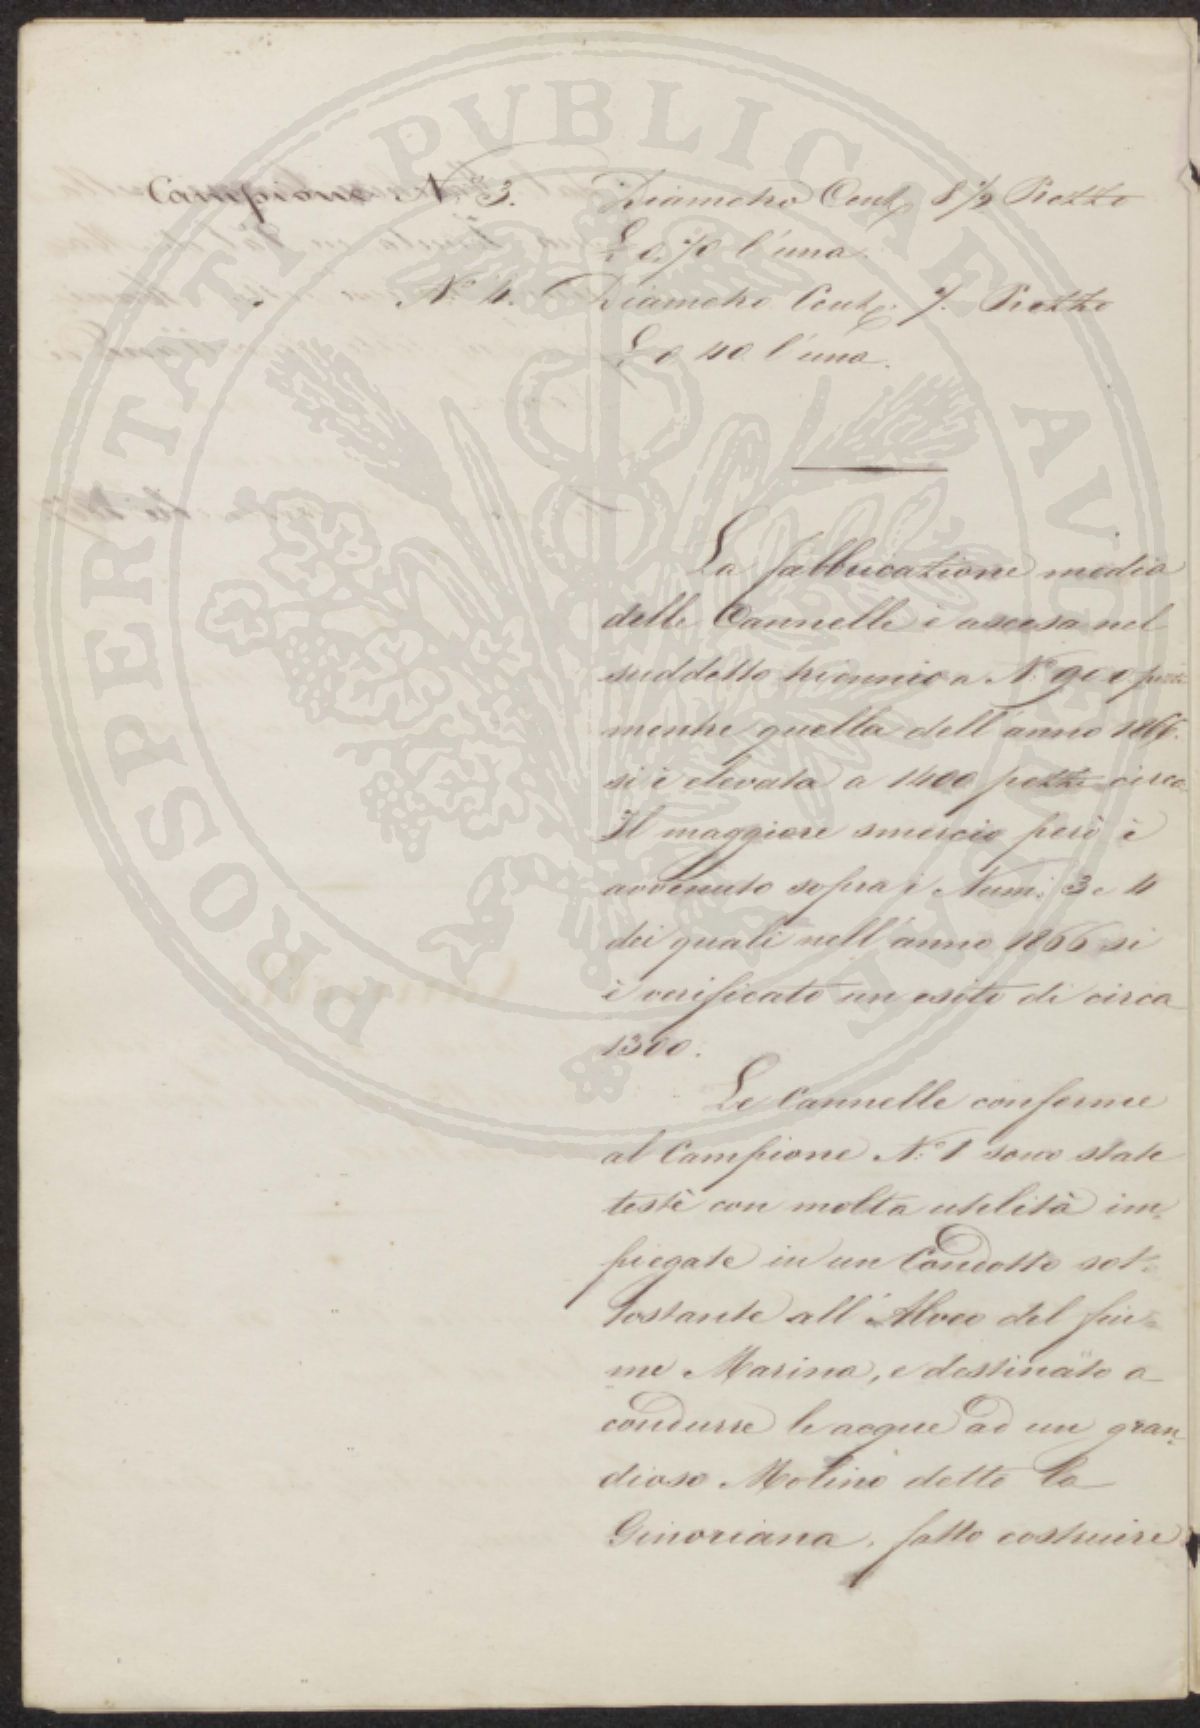 Campione N.° 3. Diametro Cent. 8 1/2 Prezzo
£ 0,70 l'una.
" N.° 4. Diametro Cent. 7. Prezzo
£ 0 40 l'una.
La fabbricazione media
delle Cannelle è ascesa nel
suddetto triennio a N.° 900 pezzi
mentre quella dell'anno 1866.
si è elevata a 1400 pezzi circa
Il maggiore smercio però è
avvenuto sopra i Num: 3 e 4
dei quali nell'anno 1866 si
è verificato un esito di circa
1300.
Le Cannelle conferme
al Campione N.° 1 sono state
testè con molta utilità im=
piegate in un Condotto sot=
tostante all'Alveo del fiu=
me Marina, e destinato a
condurre le acque ad un gran=
dioso Molino detto la
Ginoriana, fatto costruire
PROSPERITATI PUBLICAE AUGENDAE